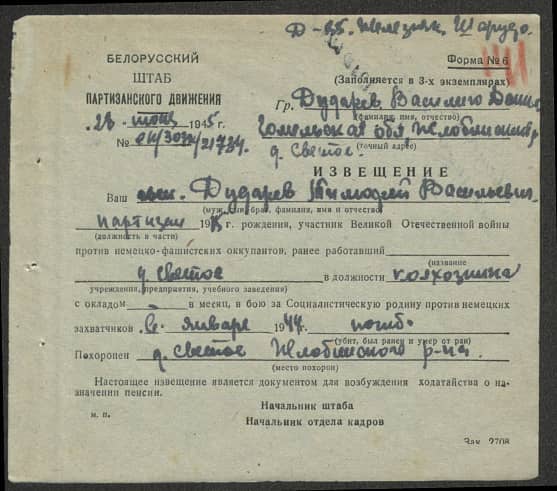 Форма № 6
БЕЛОРУССКИЙ
ШТАБ
ПАРТИЗАНСКОГО ДВИЖЕНИЯ
(Заполняется в 3-х экземплярах)
Гр. Дударев Василию
(фамилия, имя, отчество)
1945 г.
Гомельская обл
№
д. Светое.
(точный адрес)
ИЗВЕЩЕНИЕ
Ваш сын. Дударев Тимофей Васильевич
(муж, сын, брат, фамилия, имя и отчество)
партизан 19 г. рождения, участник Великой Отечественной войны
(должность в части)
против немецко-фашистских оккупантов, ранее работавший
(название
д. Светое в должности колхозника
учреждения, предприятия, учебного заведения)
с окладом в месяц, в бою за Социалистическую родину против немецких
захватчиков в январе 1944 г. погиб.
(убит, был ранен и умер от ран)
Похоронен д. Светое Жлобинского р-на.
(место похорон)
Настоящее извещение является документом для возбуждения ходатайства о на-
значении пенсии.
Начальник штаба
м. п.
Начальник отдела кадров
Зак. 2708